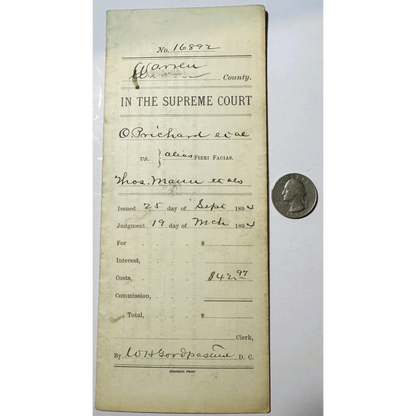 No. 16892
Warren County.
IN THE SUPREME COURT
O Prichard et al
vs. } alias FIERI FACIAS.
Thos. Mann et als
Issued 25 day of Sept 1894
Judgment 19 day of Mch 1894
For $
Interest,
Costs, $42.97
Commission,
Total, $
Clerk,
By W H Goodpasture D. C.
BRANDON PRINT